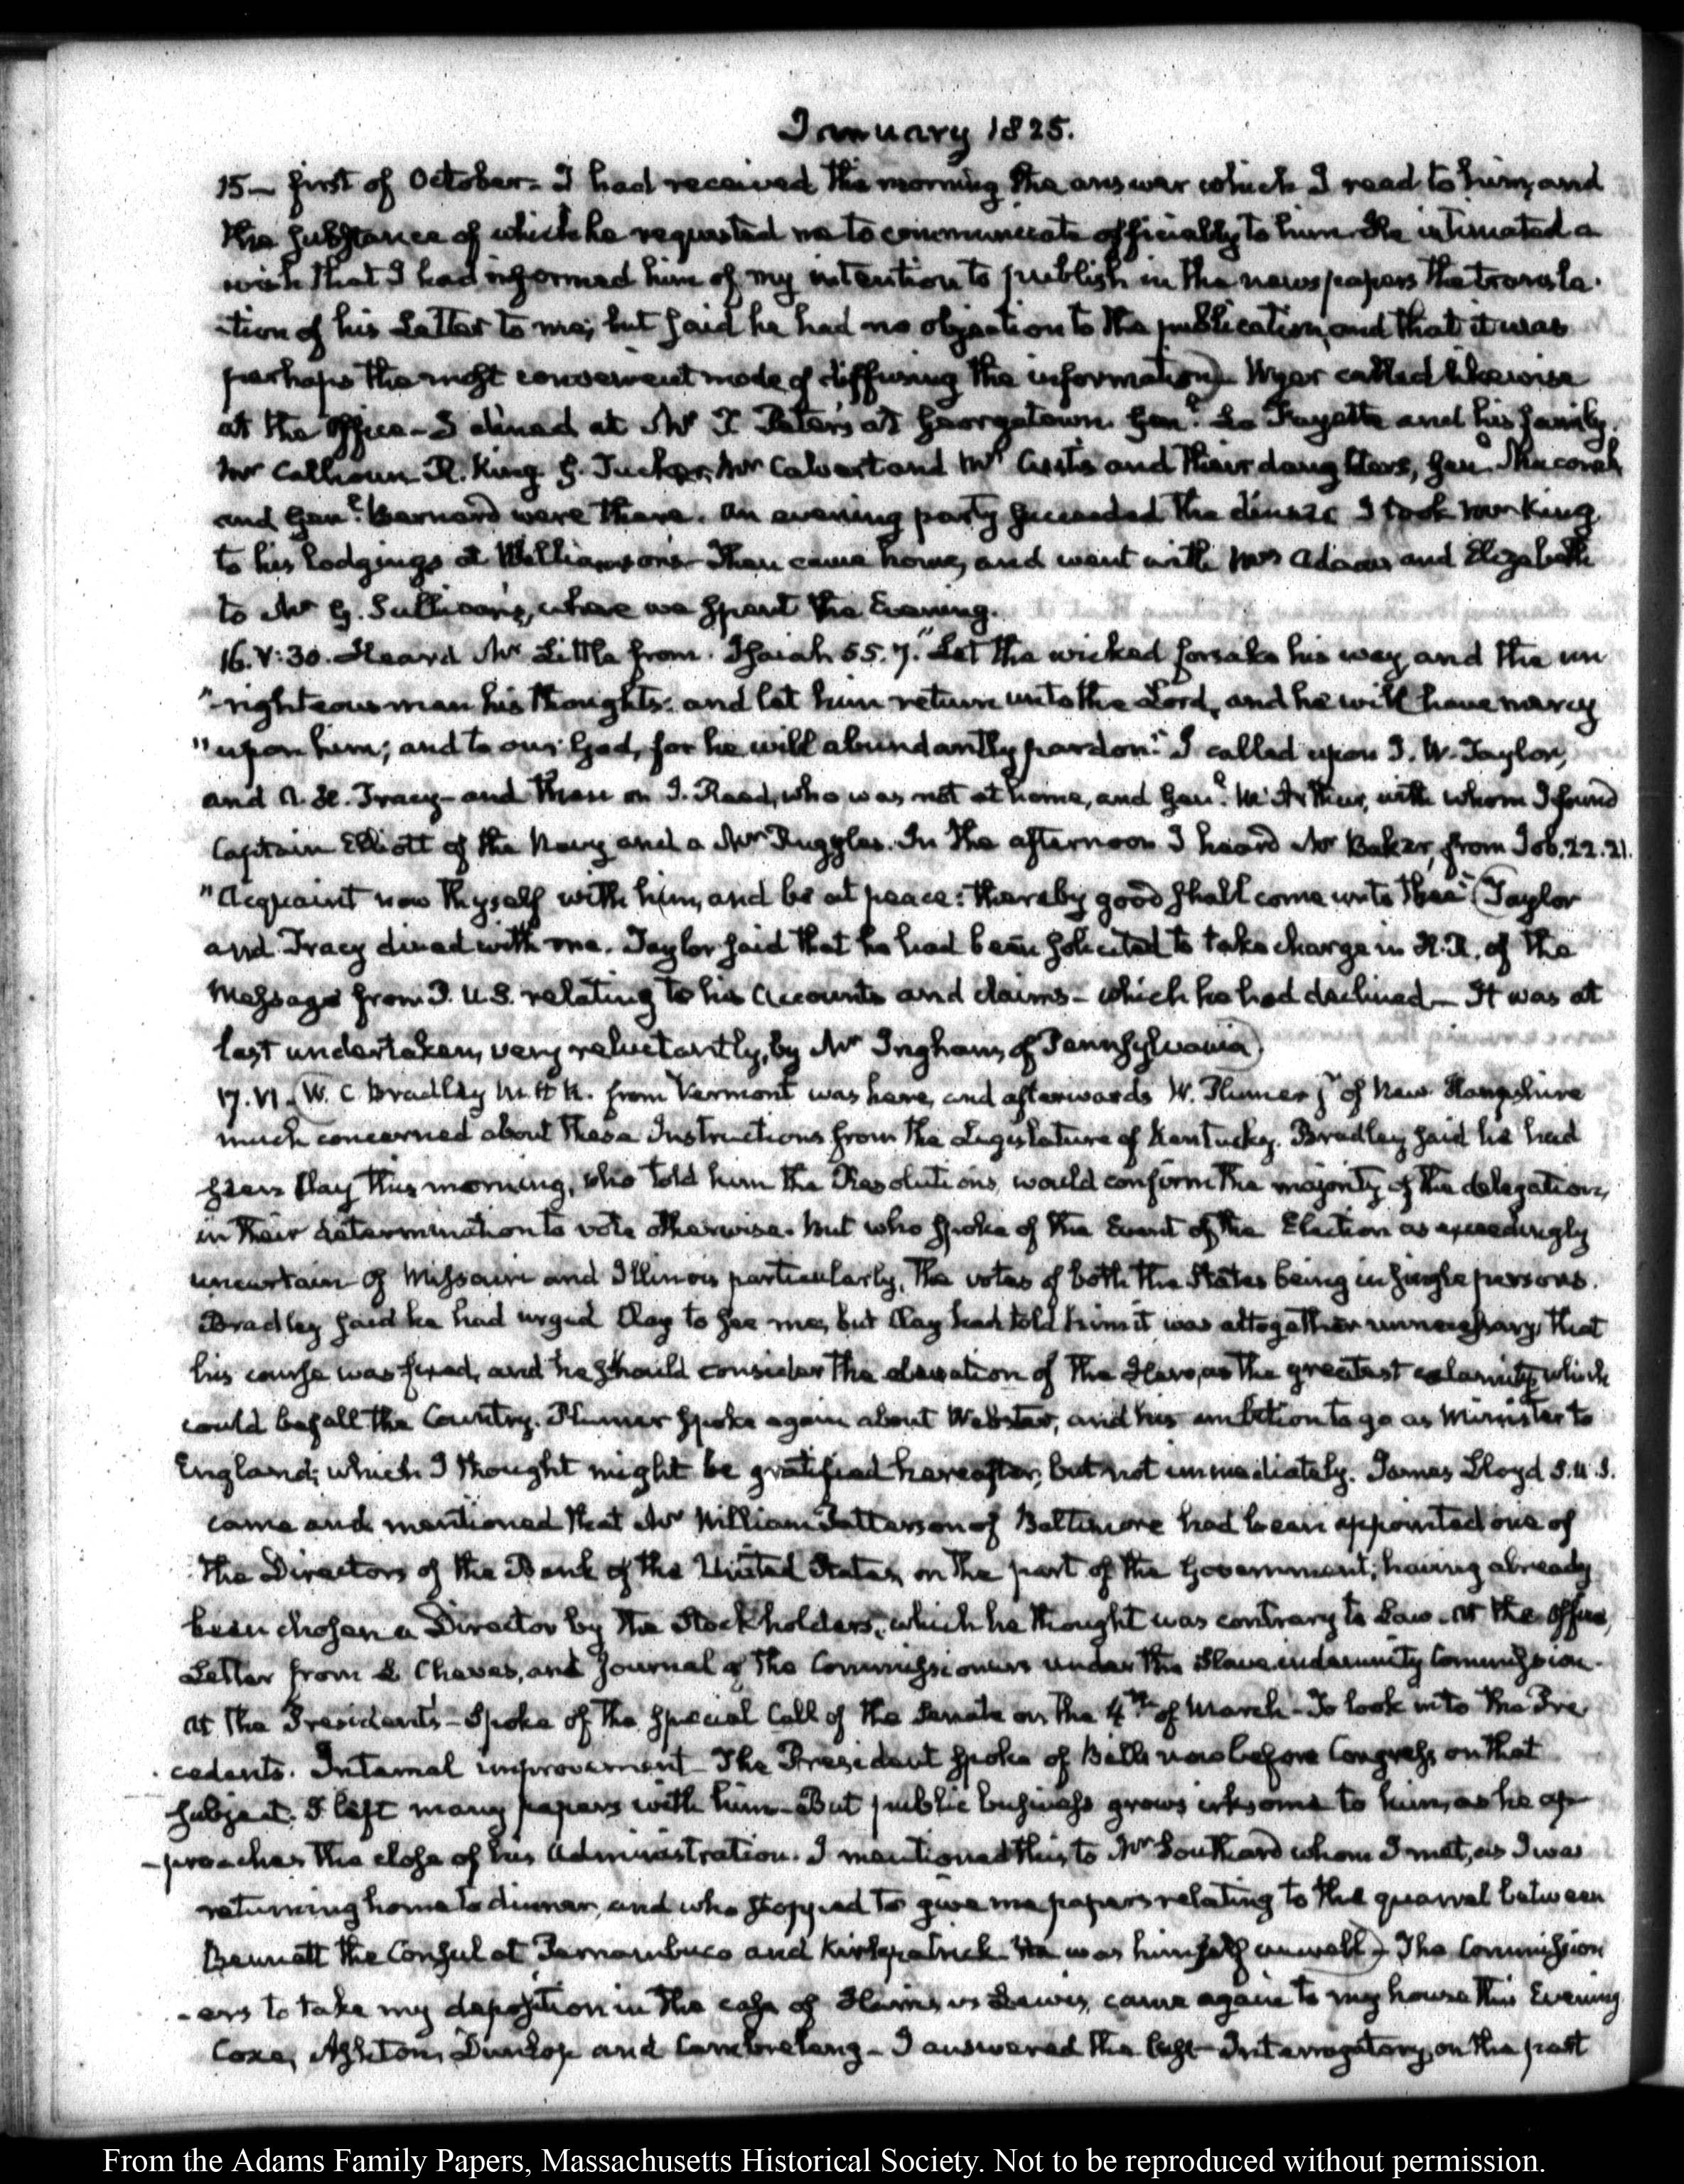 January 1825.
15— first of October. I had received this morning the answer which I read to him, and
the substance of which he requested me to communicate officially to him. He intimated a
wish that I had informed him of my intention to publish in the newspapers the transla-
-tion of his Letter to me; but said he had no objection to the publication, and that it was
perhaps the most convenient mode of diffusing the information) Wyer called likewise
at the Office— I dined at Mr T. Peter's at Georgetown. Genl. La Fayette and his family.
Mr Calhoun R. King S. Tucker, Mr Calvert and Mr Custis and their daughters, Genl. Macomb
and Genl. Bernard were there. An evening party succeeded the dinner I took Mr King
to his lodgings at Williamson's— Then came home, and went with Mrs Adams and Elizabeth
to Mr G. Sullivan's, where we spent the Evening.
16. V:30. Heard Mr Little from. Isaiah 55.7. "Let the wicked forsake his way and the un
"-righteous man his thoughts: and let him return unto the Lord, and he will have mercy
"upon him; and to our God, for he will abundantly pardon." I called upon J. W. Taylor,
and A. H. Tracy— and then on J. Reed, who was not at home, and Genl. McArthur, with whom I found
Captain Elliott of the Navy and a Mr Ruggles. In the afternoon I heard Mr Baker, from Job. 22.21.
"Acquaint now thyself with him, and be at peace: thereby good shall come unto thee" (Taylor
and Tracy dined with me. Taylor said that he had been solicited to take charge in H.R. of the
Message from P. U.S. relating to his Accounts and claims— which he had declined— It was at
last undertaken, very reluctantly, by Mr Ingham, of Pennsylvania)
17. VI. (W. C Bradley M. H R. from Vermont was here, and afterwards W. Plumer jr of New Hampshire
much concerned about these Instructions from the Legislature of Kentucky. Bradley said he had
seen Clay this morning, who told him the Resolutions, would confirm the majority of the delegation,
in their determination to vote otherwise. But who spoke of the Event of the Election as exceedingly
uncertain of Missouri and Illinois particularly, the votes of both the States being in single persons.
Bradley said he had urged Clay to see me, but Clay had told him it was altogether unnecessary, that
his course was fixed, and he should consider the elevation of the Hero, as the greatest calamity which
could befall the Country. Plumer spoke again about Webster, and his ambition to go as Minister to
England; which I thought might be gratified hereafter, but not immediately. James Lloyd S.U.S.
came and mentioned that Mr William Patterson of Baltimore had been appointed one of
the Directors of the Bank of the United States, on the part of the Government; having already
been chosen a Director by the Stockholders; which he thought was contrary to Law. At the Office,
Letter from L Cheves, and Journal of the Commissioners under the Slave indemnity Commission.
At the President's— Spoke of the special Call of the Senate on the 4th of March— To look into the Pre
cedents. Internal improvement— The President spoke of Bills now before Congress on that
subject. I left many papers with him— But public business grows irksome to him, as he ap
-proaches the close of his Administration. I mentioned this to Mr Southard whom I met, as I was
returning home to dinner, and who stopped to give me papers relating to the quarrel between
Bennett the Consul at Pernambuco and Kirkpatrick He was himself unwell)— The Commission
-ers to take my deposition in the case of Harris vs Lewis, came again to my house this Evening
Coxe, Ashton, Dunlop and Cambreleng— I answered the last Interrogatory, on the part
From the Adams Family Papers, Massachusetts Historical Society. Not to be reproduced without permission.